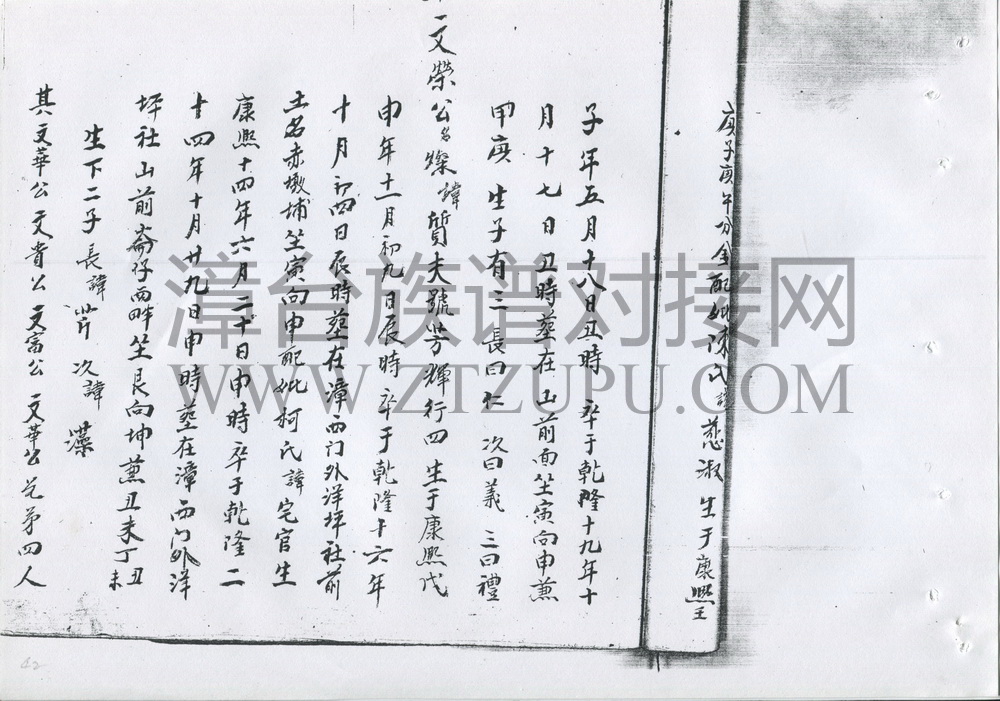 庚子庚午分金配妣陳氏諱慈淑生于康熙壬
子年五月十八日丑時卒于乾隆十九年十
月十七日丑時塟在山前面坐寅向申兼
甲庚生子有三長曰仁次曰義三曰禮
一文榮公名燦諱質夫號芳輝行四生于康熙戊
申年十一月初九日辰時卒于乾隆十六年
十月初四日辰時塟在漳西门外洋坪社前
土名赤墩埔坐寅向申配妣柯氏諱宅官生
康熙十四年六月二十日申時卒于乾隆二
十四年十月廿九日申時塟在漳西门外洋
坪社山前崙仔西畔坐艮向坤兼丑未丁丑未
生下二子長諱 次諱藻
其文華公文貴公文富公文華公兄弟四人
漳台族谱对接网
WWW.ZTZUPU.COM
42